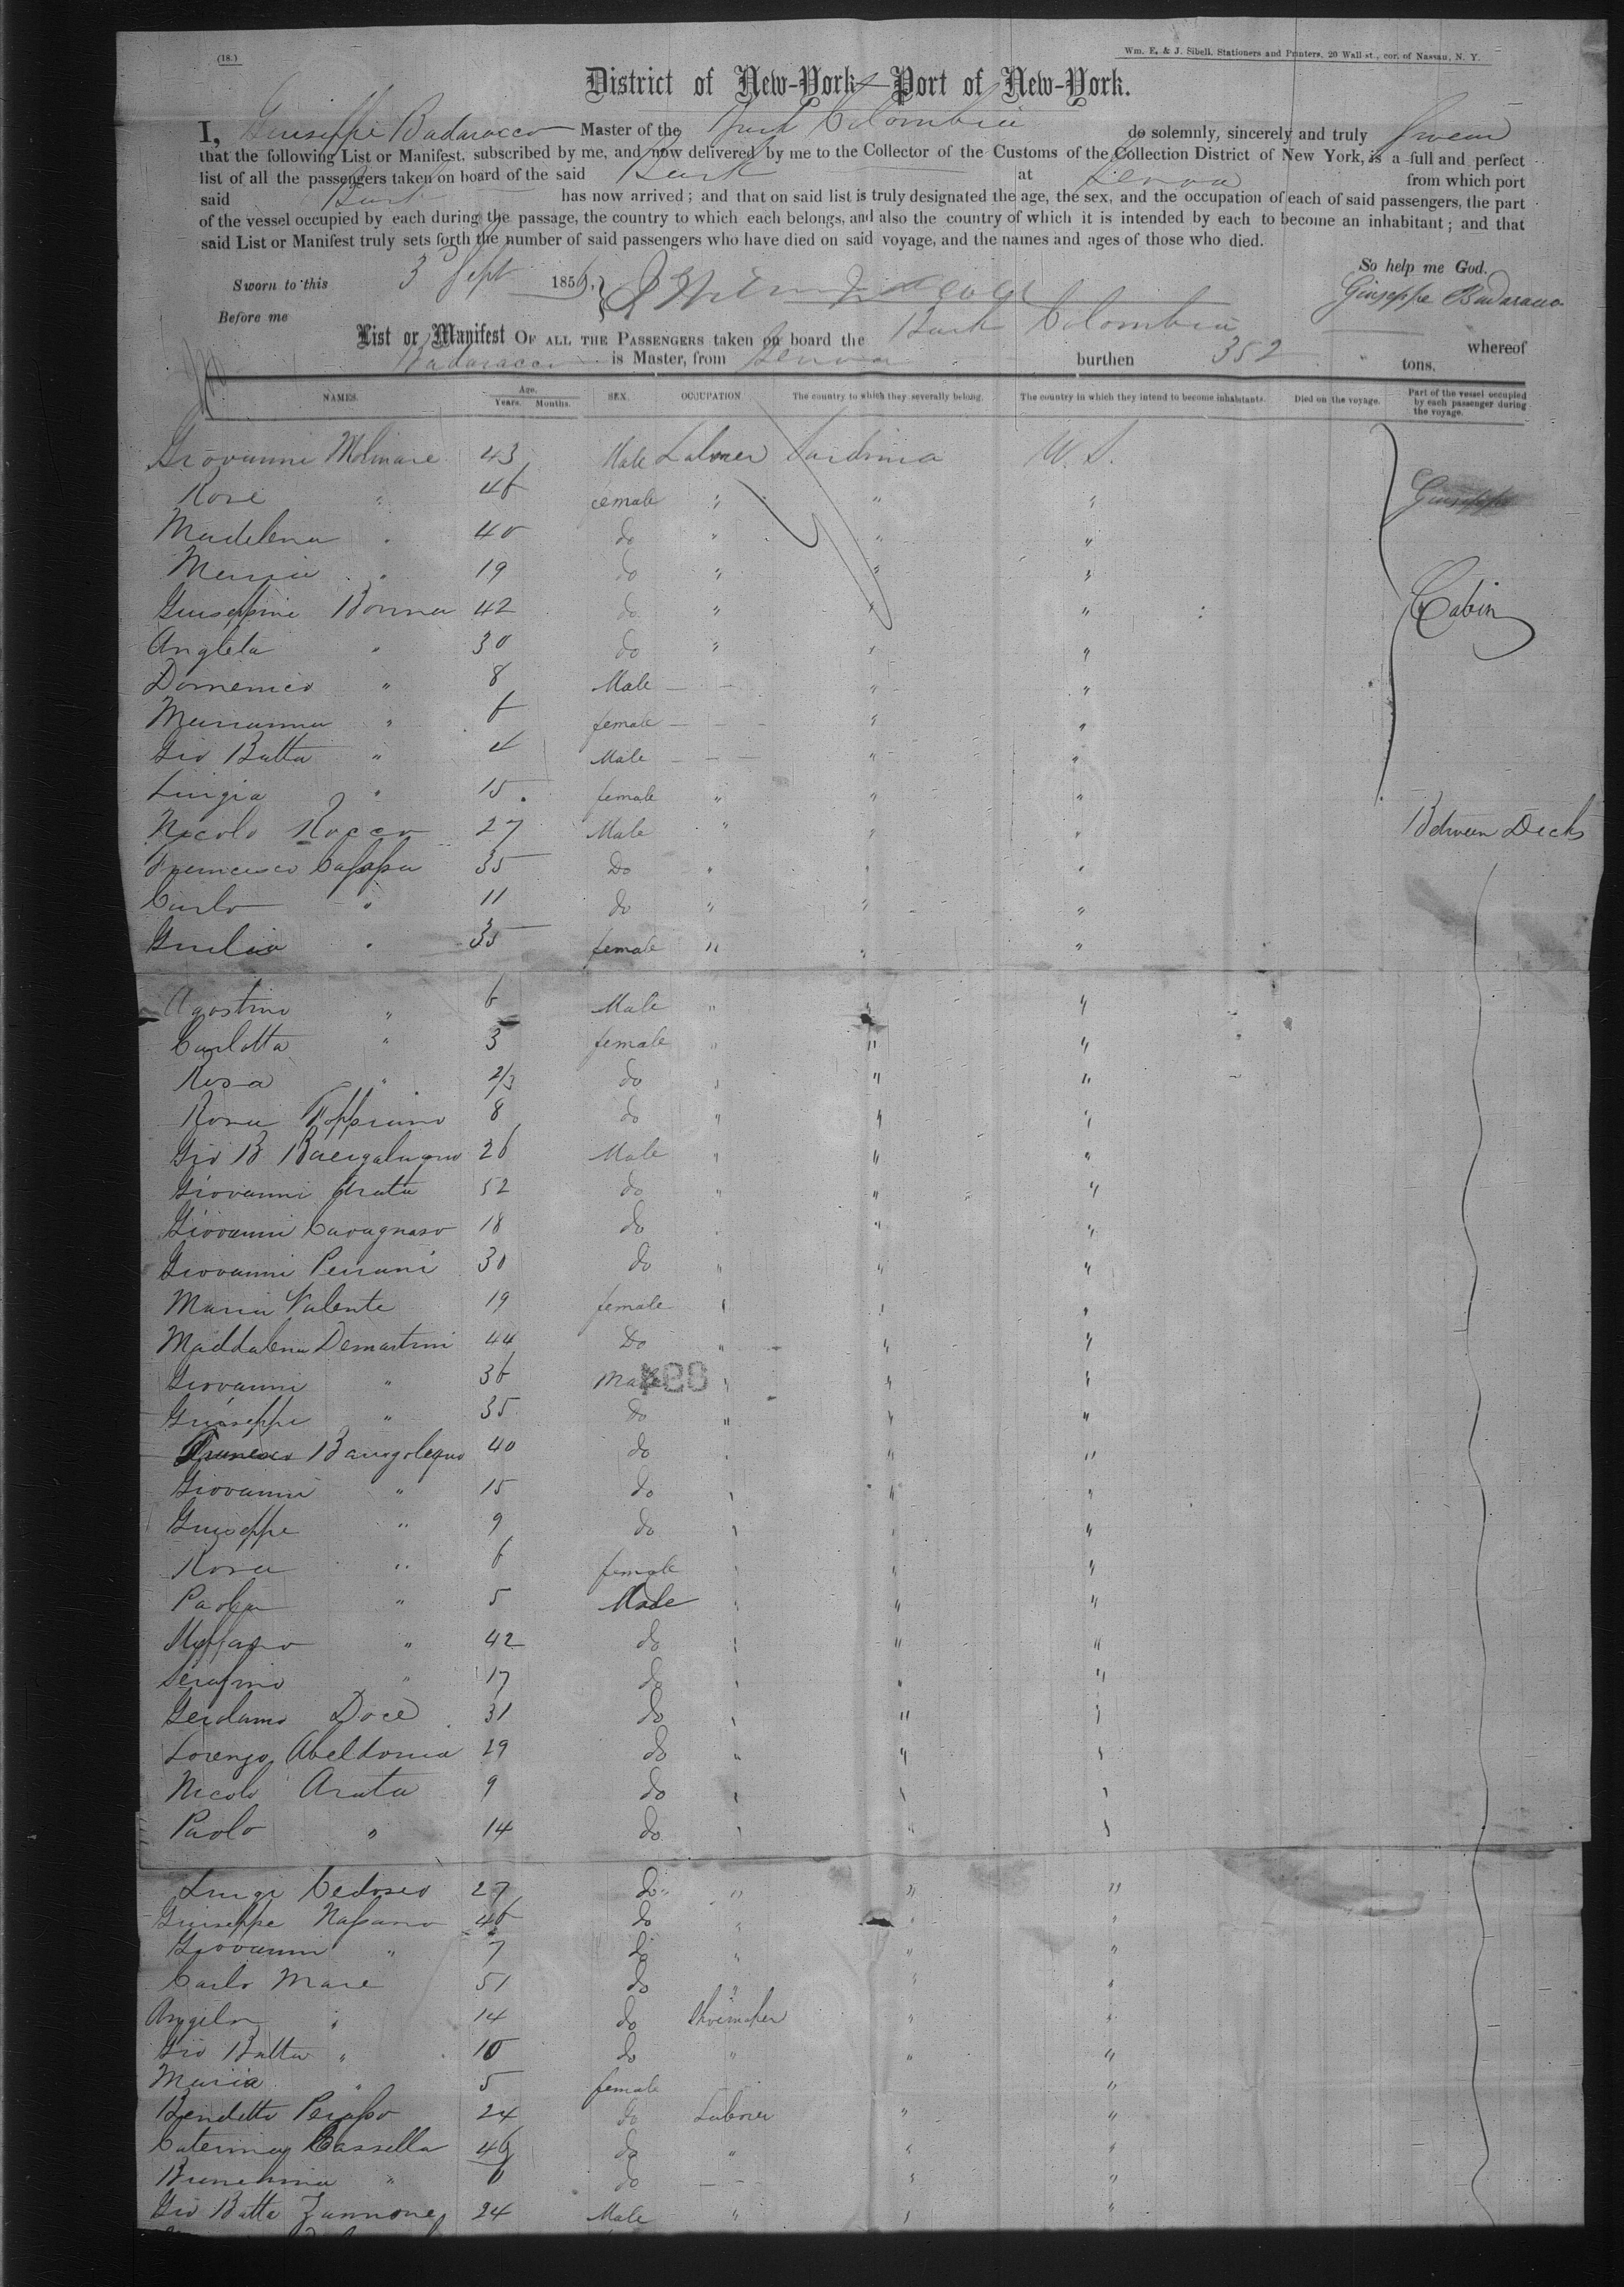 (18.)
Wm. E. & J. Sibell, Stationers and Printers, 20 Wall st., cor. of Nassau, N. Y.
District of New-York—Port of New-York.
I, Giuseppe Badaracco Master of the Bark Colombia do solemnly, sincerely and truly swear
that the following List or Manifest, subscribed by me, and now delivered by me to the Collector of the Customs of the Collection District of New York, is a full and perfect
list of all the passengers taken on board of the said Bark at Genoa from which port
said Bark has now arrived; and that on said list is truly designated the age, the sex, and the occupation of each of said passengers, the part
of the vessel occupied by each during the passage, the country to which each belongs, and also the country of which it is intended by each to become an inhabitant; and that
said List or Manifest truly sets forth the number of said passengers who have died on said voyage, and the names and ages of those who died.
So help me God.
Sworn to this 3 Sept 1856,
Giuseppe Badaracco
Before me
List or Manifest OF ALL THE PASSENGERS taken on board the Bark Colombia whereof
Badaracco is Master, from Genoa burthen 352 tons.
NAMES. Age. Years. Months. SEX. OCCUPATION The country to which they severally belong. The country in which they intend to become inhabitants. Died on the voyage. Part of the vessel occupied by each passenger during the voyage.
Giovanni Molinare 43 Male Laborer Sardinia U. S.
Rose " 46 female " " " Giuseppe
Madelena " 40 do " " "
Maria " 19 do " " "
Giuseppine Bonna 42 do " " " Cabin
Angleta " 30 do " " "
Domenico " 8 Male — - " "
Marianna " 6 female — - - " "
Gio Batta " 4 Male — - — " "
Luigia " 15 female " " "
Nicolo Rocco 27 Male " " " Between Decks
Francesco Cassassa 35 Do " " "
Carlo " 11 do " " "
Giulia " 35 female " " "
Agostino " 6 Male " " "
Carlotta " 3 female " " "
Rosa " 2/3 do " " "
Rosa Foppiano 8 do " " "
Gio B Bacigalupo 26 Male " " "
Giovanni Arata 52 do " " "
Giovanni Cavagnaro 18 do " " "
Giovanni Peirani 30 do " " "
Maria Valente 19 female " " "
Maddalena Demartini 44 Do " " "
Giovanni " 36 Male " " "
Giuseppe " 35 do " " "
Francesco 40 do " " "
Giovanni " 15 do " " "
Giuseppe " 9 do " " "
Rosa " 6 female " " "
Paola " 5 Male " " "
" 42 do " " "
Serafino " 17 do " " "
Gerolamo Doce 31 do " " "
Lorenzo Abeldonia 29 do " " "
Nicolo Arata 9 do " " "
Paolo " 14 do " " "
Luigi Cedoseo 27 do " " "
Giuseppe Nassano 46 do " " "
Giovanni " 7 do " " "
Carlo Mare 51 do " " "
Angelo " 14 do Shoemaker " "
Gio Batta " 10 do " " "
Maria " 5 female "
Bendetto Perasso 24 do Laborer " "
Caterina Cassella 46 do " " "
" do — " "
Gio Batta Zannone 24 Male " " "